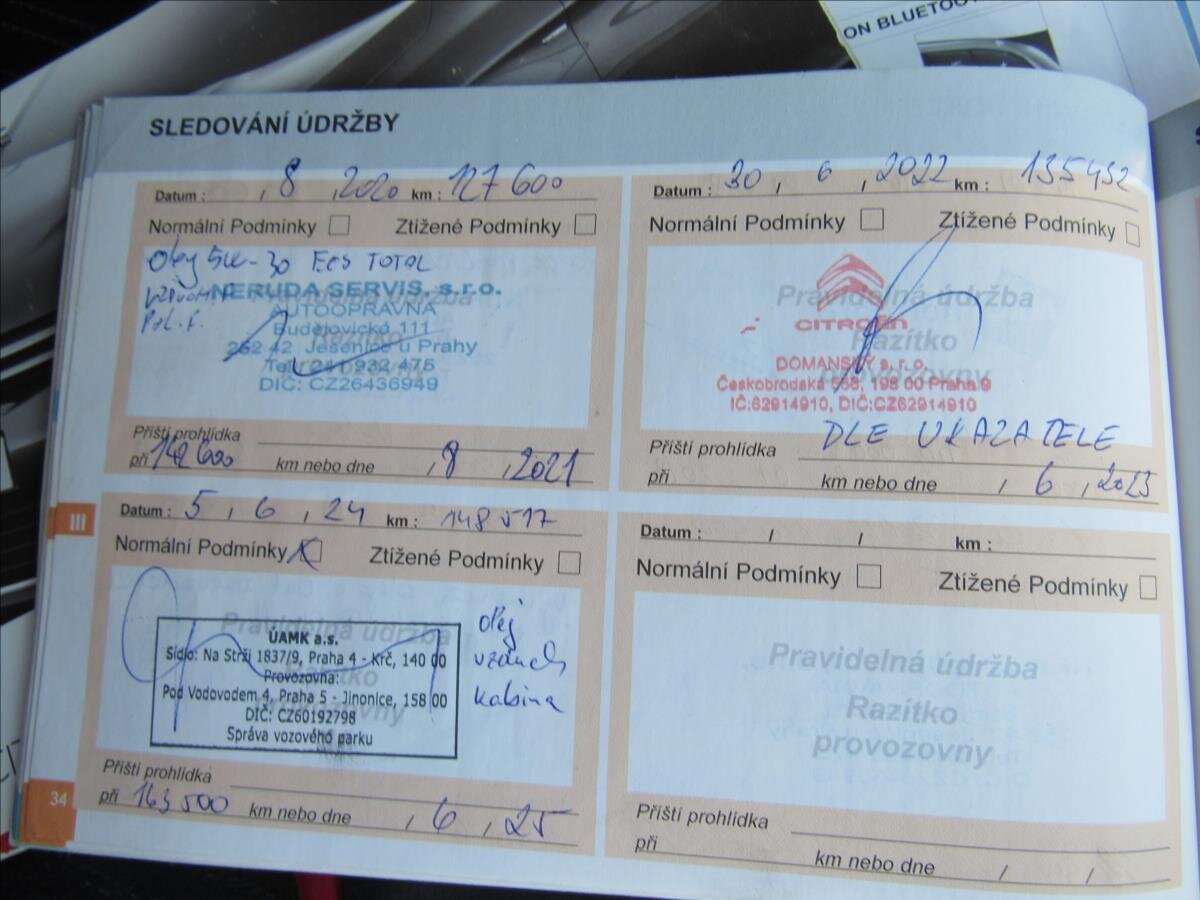 ON BLUETOO
SLEDOVÁNÍ ÚDRŽBY
Datum : , 8 , 2020 km : 127 600
Normální Podmínky Ztížené Podmínky
Olej 5W-30 ECS TOTAL
NERUDA SERVIS, s.r.o.
AUTOOPRAVNA
Budějovická 111
252 42 Jesenice u Prahy
Tel.: 241 932 475
DIČ: CZ26436949
Příští prohlídka
při 142600 km nebo dne , 8 , 2021
Datum : 30 , 6 , 2022 km : 135432
Normální Podmínky Ztížené Podmínky
Pravidelná údržba
Razítko
provozovny
CITROËN
DOMANSKÝ s.r.o.
Českobrodská 568, 198 00 Praha 9
IČ:62914910, DIČ:CZ62914910
DLE UKAZATELE
Příští prohlídka
při km nebo dne , 6 , 2023
III
Datum : 5 , 6 , 24 km : 148 517
Normální Podmínky X Ztížené Podmínky
Pravidelná údržba
Razítko
provozovny
ÚAMK a.s.
Sídlo: Na Strži 1837/9, Praha 4 - Krč, 140 00
Provozovna:
Pod Vodovodem 4, Praha 5 - Jinonice, 158 00
DIČ: CZ60192798
Správa vozového parku
olej
vzduch
kabina
Příští prohlídka
při 163 500 km nebo dne , 6 , 25
34
Datum : / / km :
Normální Podmínky Ztížené Podmínky
Pravidelná údržba
Razítko
provozovny
Příští prohlídka
při km nebo dne / /